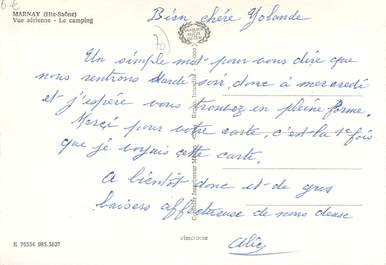 MARNAY (Hte-Saône)
Vue aérienne - Le camping
70
Bien chère Yolande
Un simple mot pour vous dire que
nous rentrons mardi soir, donc à mercredi
et j'espère vous trouvez en pleine forme.
Merçi pour votre carte, c'est la 1e fois
que je voyais cette carte.
A bientôt donc et de gros
baisers affectueuse de nous deux
Alice
E 70334 985.5027